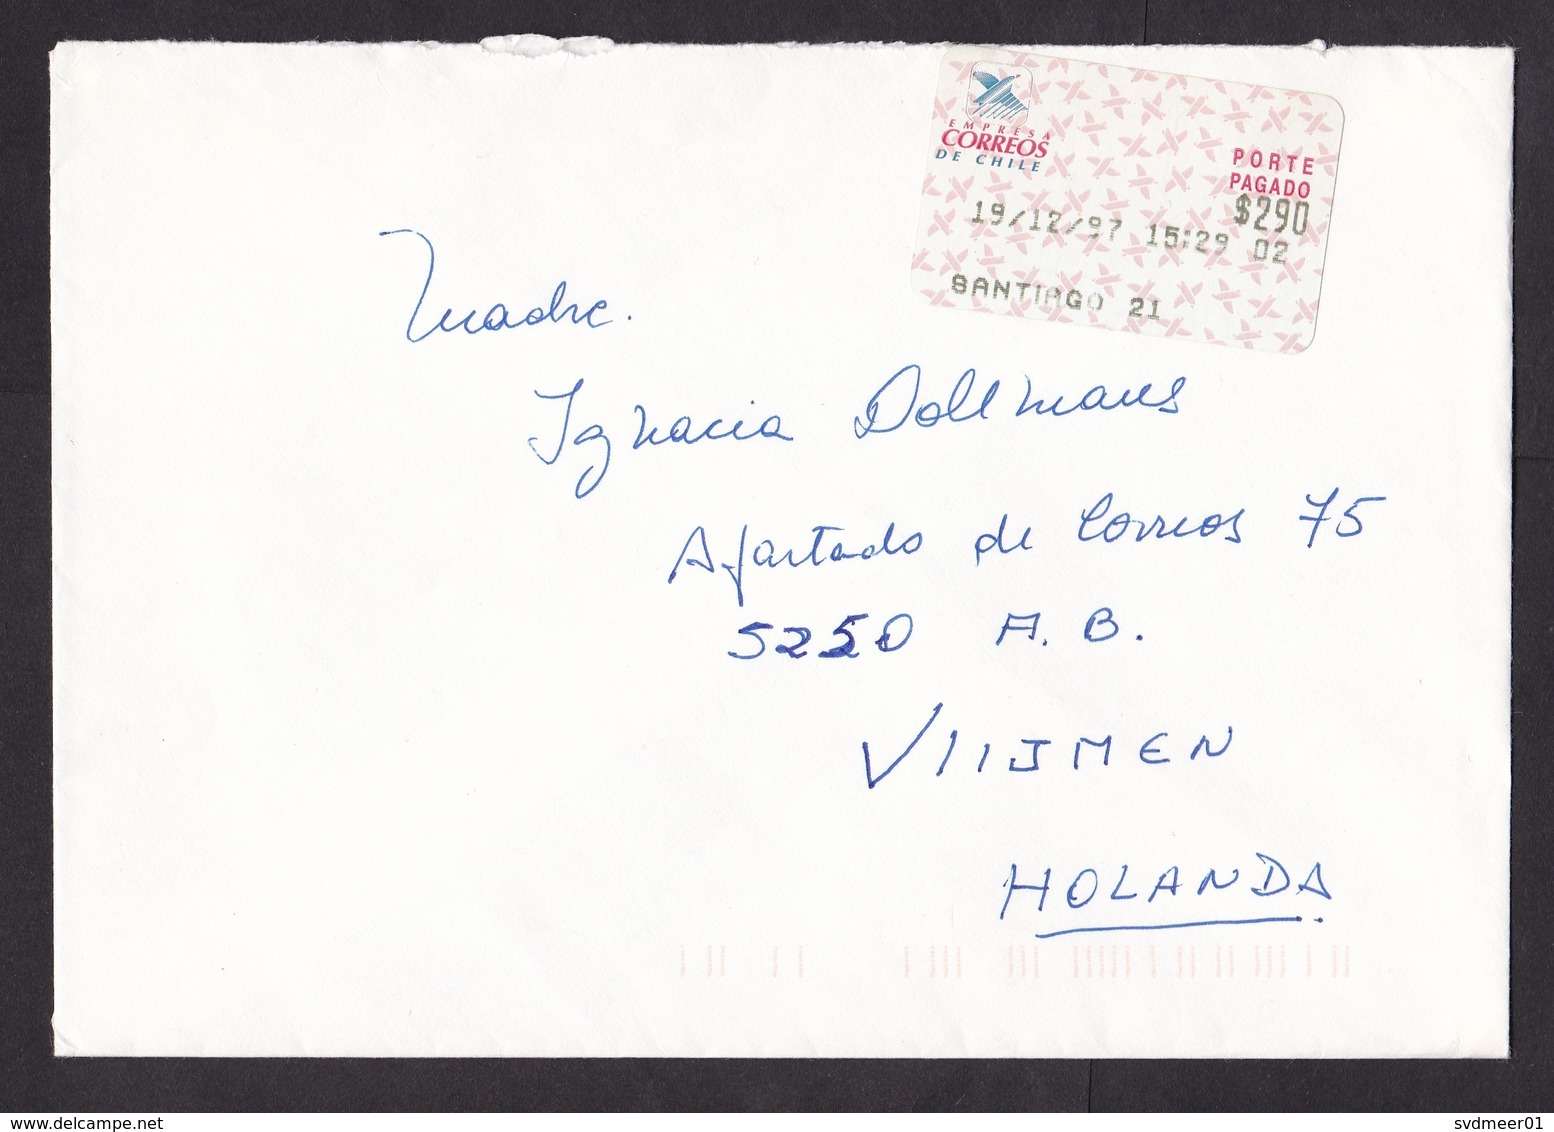 EMPRESA
CORREOS
DE CHILE
PORTE
PAGADO
$290
19/12/97 15:29 02
SANTIAGO 21
Madre.
Ignacia Dollmans
Apartado de Correos 75
5250 A.B.
VIIJMEN
HOLANDA
www.delcampe.net
svdmeer01